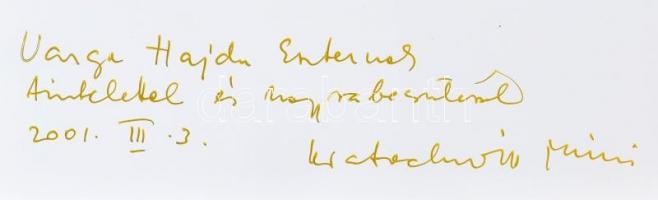 Varga Hajdu Eszternek
tisztelettel és nagyrabecsüléssel
2001. III. 3.
Kratochwill Mimi
darabanth